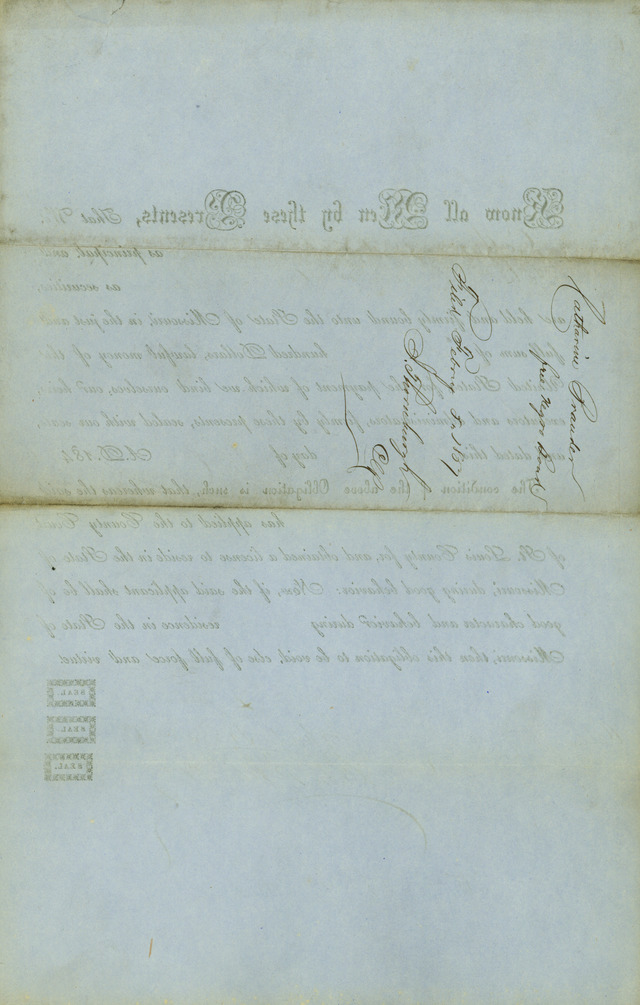 Catherine
free negro Bond
Filed Febry
S. D.
Clk
Know all Men by these Presents, That We
as principal, and
as securities,
held and firmly bound unto the State of Missouri, in the just and
full sum of hundred Dollars, lawful money of the
United States, for the payment of which we bind ourselves, our heirs,
executors and administrators, firmly by these presents, sealed with our seals,
and dated this day of A. D. 184
The condition of the above Obligation is such, that whereas the said
has applied to the County Court
of St. Louis County for, and obtained a license to reside in the State of
Missouri, during good behavior: Now, if the said applicant shall be of
good character and behavior during residence in the State of
Missouri, then this obligation to be void, else of full force and virtue.
SEAL
SEAL
SEAL